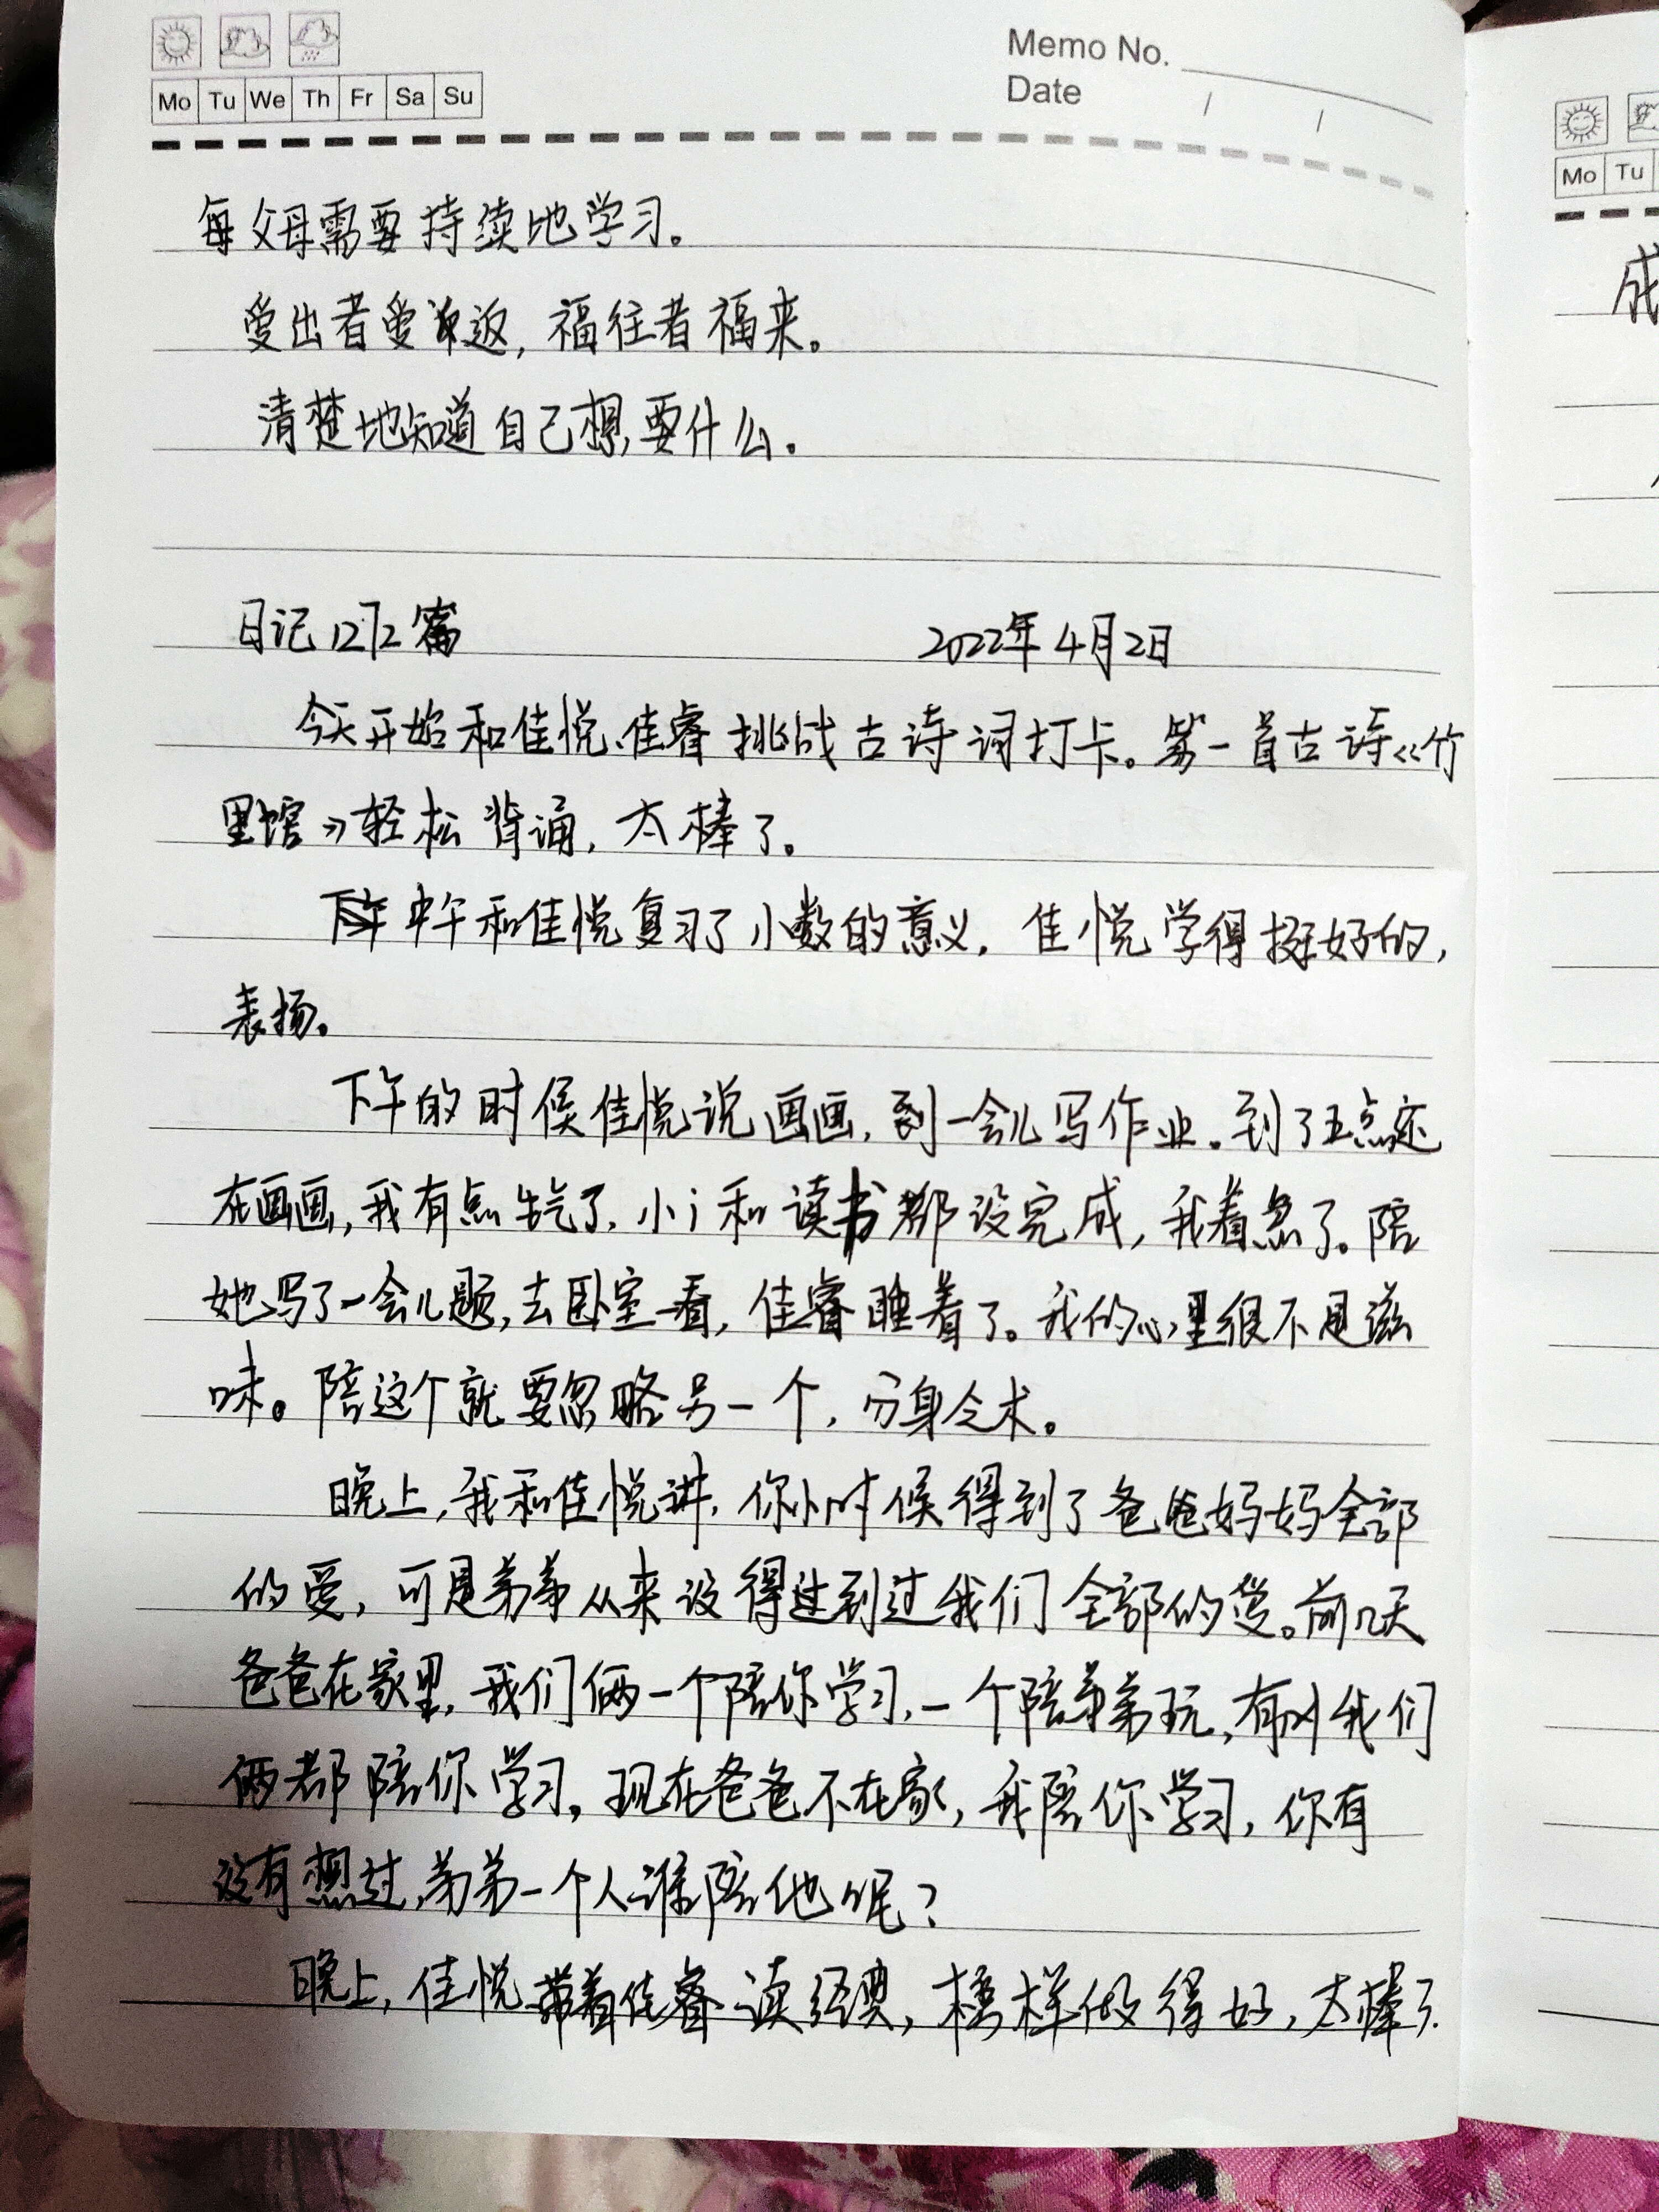 Memo No.
Mo Tu We Th Fr Sa Su
Date / /
每父母需要持续地学习。
爱出者爱返，福往者福来。
清楚地知道自己想要什么。
日记1272篇 2022年4月2日
今天开始和佳悦、佳睿挑战古诗词打卡。第一首古诗《竹
里馆》轻松背诵，太棒了。
中午和佳悦复习了小数的意义，佳悦学得挺好的，
表扬。
下午的时候佳悦说画画，到一会儿写作业。到了五点还
在画画，我有点生气了，小i和读书都没完成，我着急了。陪
她写了一会儿题，去卧室一看，佳睿睡着了。我的心里很不是滋
味。陪这个就要忽略另一个，分身乏术。
晚上，我和佳悦讲，你小时候得到了爸爸妈妈全部
的爱，可是弟弟从来没得过到过我们全部的爱。前几天
爸爸在家里，我们俩一个陪你学习，一个陪弟弟玩，有时我们
俩都陪你学习，现在爸爸不在家，我陪你学习，你有
没有想过，弟弟一个人谁陪他呢？
晚上，佳悦带着佳睿读经典，榜样做得好，太棒了.
Mo Tu
成